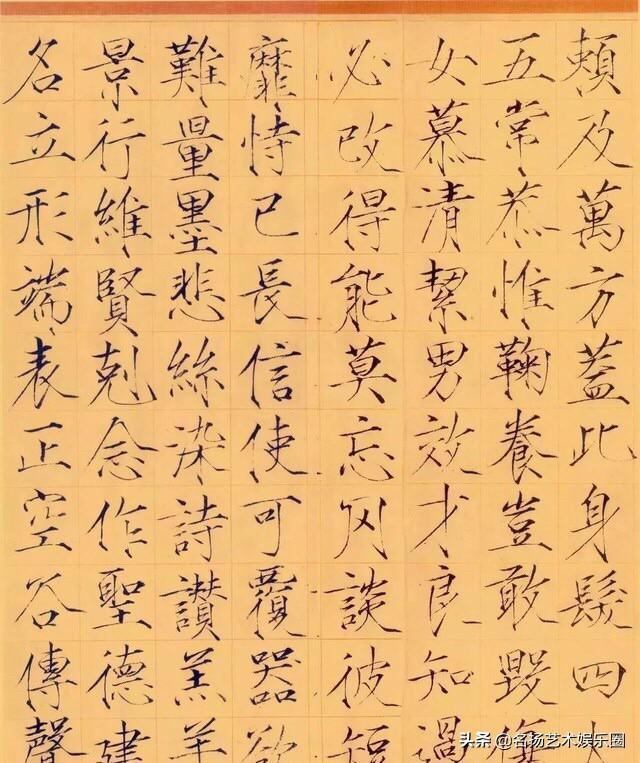 賴及萬方蓋此身髮四大
五常恭惟鞠養豈敢毀傷
女慕清絜男效才良知過
必改得能莫忘罔談彼短
靡恃已長信使可覆器欲
難量墨悲絲染詩讚羔羊
景行維賢剋念作聖德建
名立形端表正空谷傳聲
头条 @名扬艺术娱乐圈